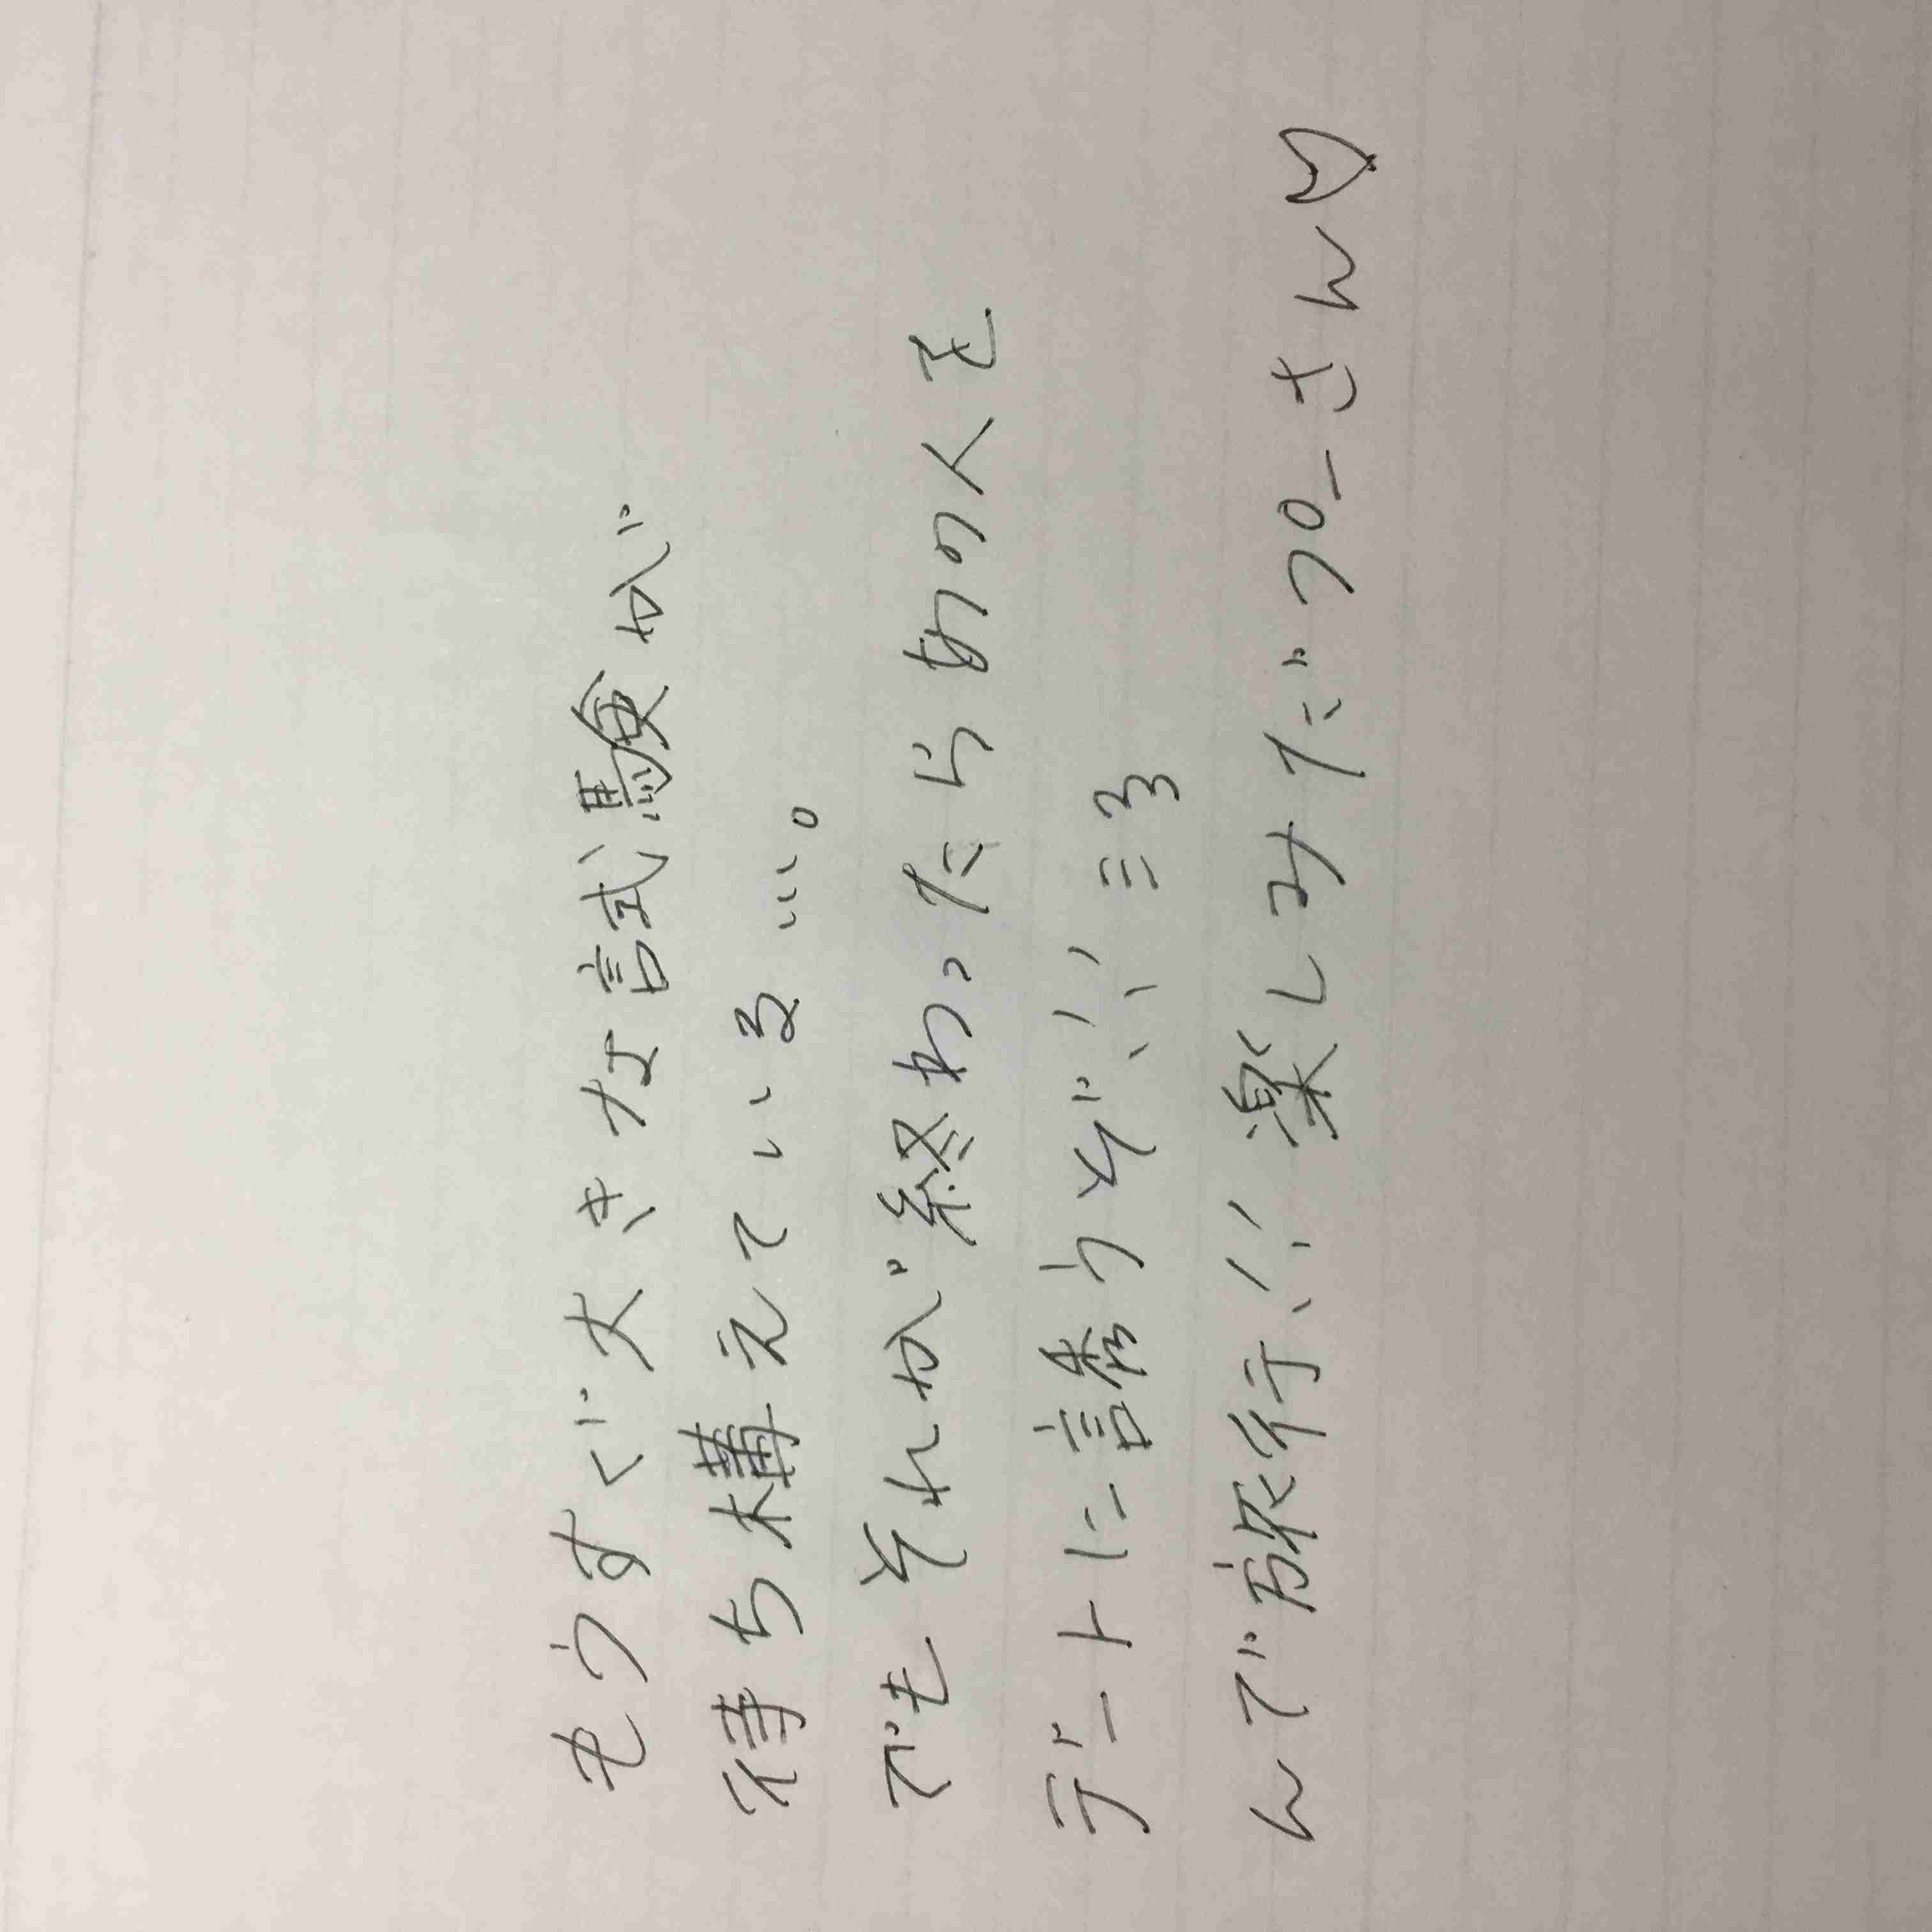 もうすぐ大きな試験が
待ち構えている…。
でもそれが終わったらあの人を
デートに誘うぞ!! 三3
んで旅行!! 楽しみだつ○ーさん♡